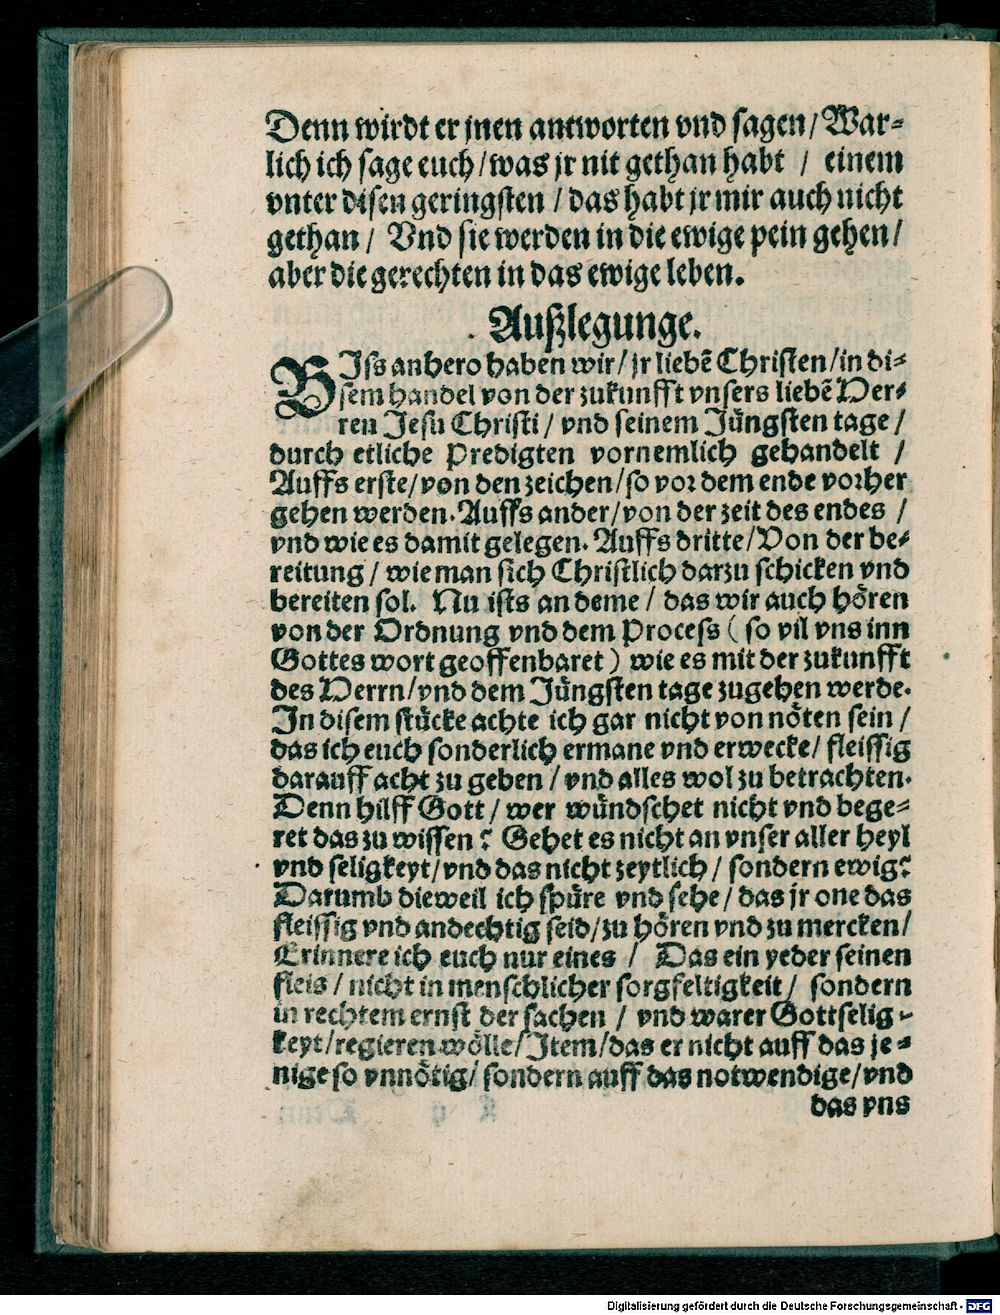 Denn wirdt er jnen antworten vnd sagen/ War-
lich ich sage euch/ was jr nit gethan habt / einem
vnter disen geringsten / das habt jr mir auch nicht
gethan / Vnd sie werden in die ewige pein gehen/
aber die gerechten in das ewige leben.
Außlegunge.
BIss anhero haben wir/ jr liebẽ Christen/in di-
sem handel von der zukunfft vnsers liebẽ Her-
ren Jesu Christi / vnd seinem Jüngsten tage /
durch etliche Predigten vornemlich gehandelt /
Auffs erste/von den zeichen/so vor dem ende vorher
gehen werden. Auffs ander/von der zeit des endes /
vnd wie es damit gelegen. Auffs dritte/Von der be-
reitung / wie man sich Christlich darzu schicken vnd
bereiten sol. Nu ists an deme / das wir auch hören
von der Ordnung vnd dem Process ( so vil vns inn
Gottes wort geoffenbaret ) wie es mit der zukunfft
des Herrn/vnd dem Jüngsten tage zugehen werde.
In disem stücke achte ich gar nicht von nöten sein /
das ich euch sonderlich ermane vnd erwecke/ fleissig
darauff acht zu geben / vnd alles wol zu betrachten.
Denn hilff Gott / wer wündschet nicht vnd bege-
ret das zu wissen? Gehet es nicht an vnser aller heyl
vnd seligkeyt/vnd das nicht zeytlich / sondern ewig?
Darumb dieweil ich spüre vnd sehe / das jr one das
fleissig vnd andechtig seid/zu hören vnd zu mercken/
Erinnere ich euch nur eines / Das ein yeder seinen
fleis / nicht in menschlicher sorgfeltigkeit / sondern
in rechtem ernst der sachen / vnd warer Gottselig-
keyt/regieren wölle/ Item/das er nicht auff das je-
nige so vnnötig/ sondern auff das notwendige/vnd
das vns
Digitalisierung gefördert durch die Deutsche Forschungsgemeinschaft - DFG